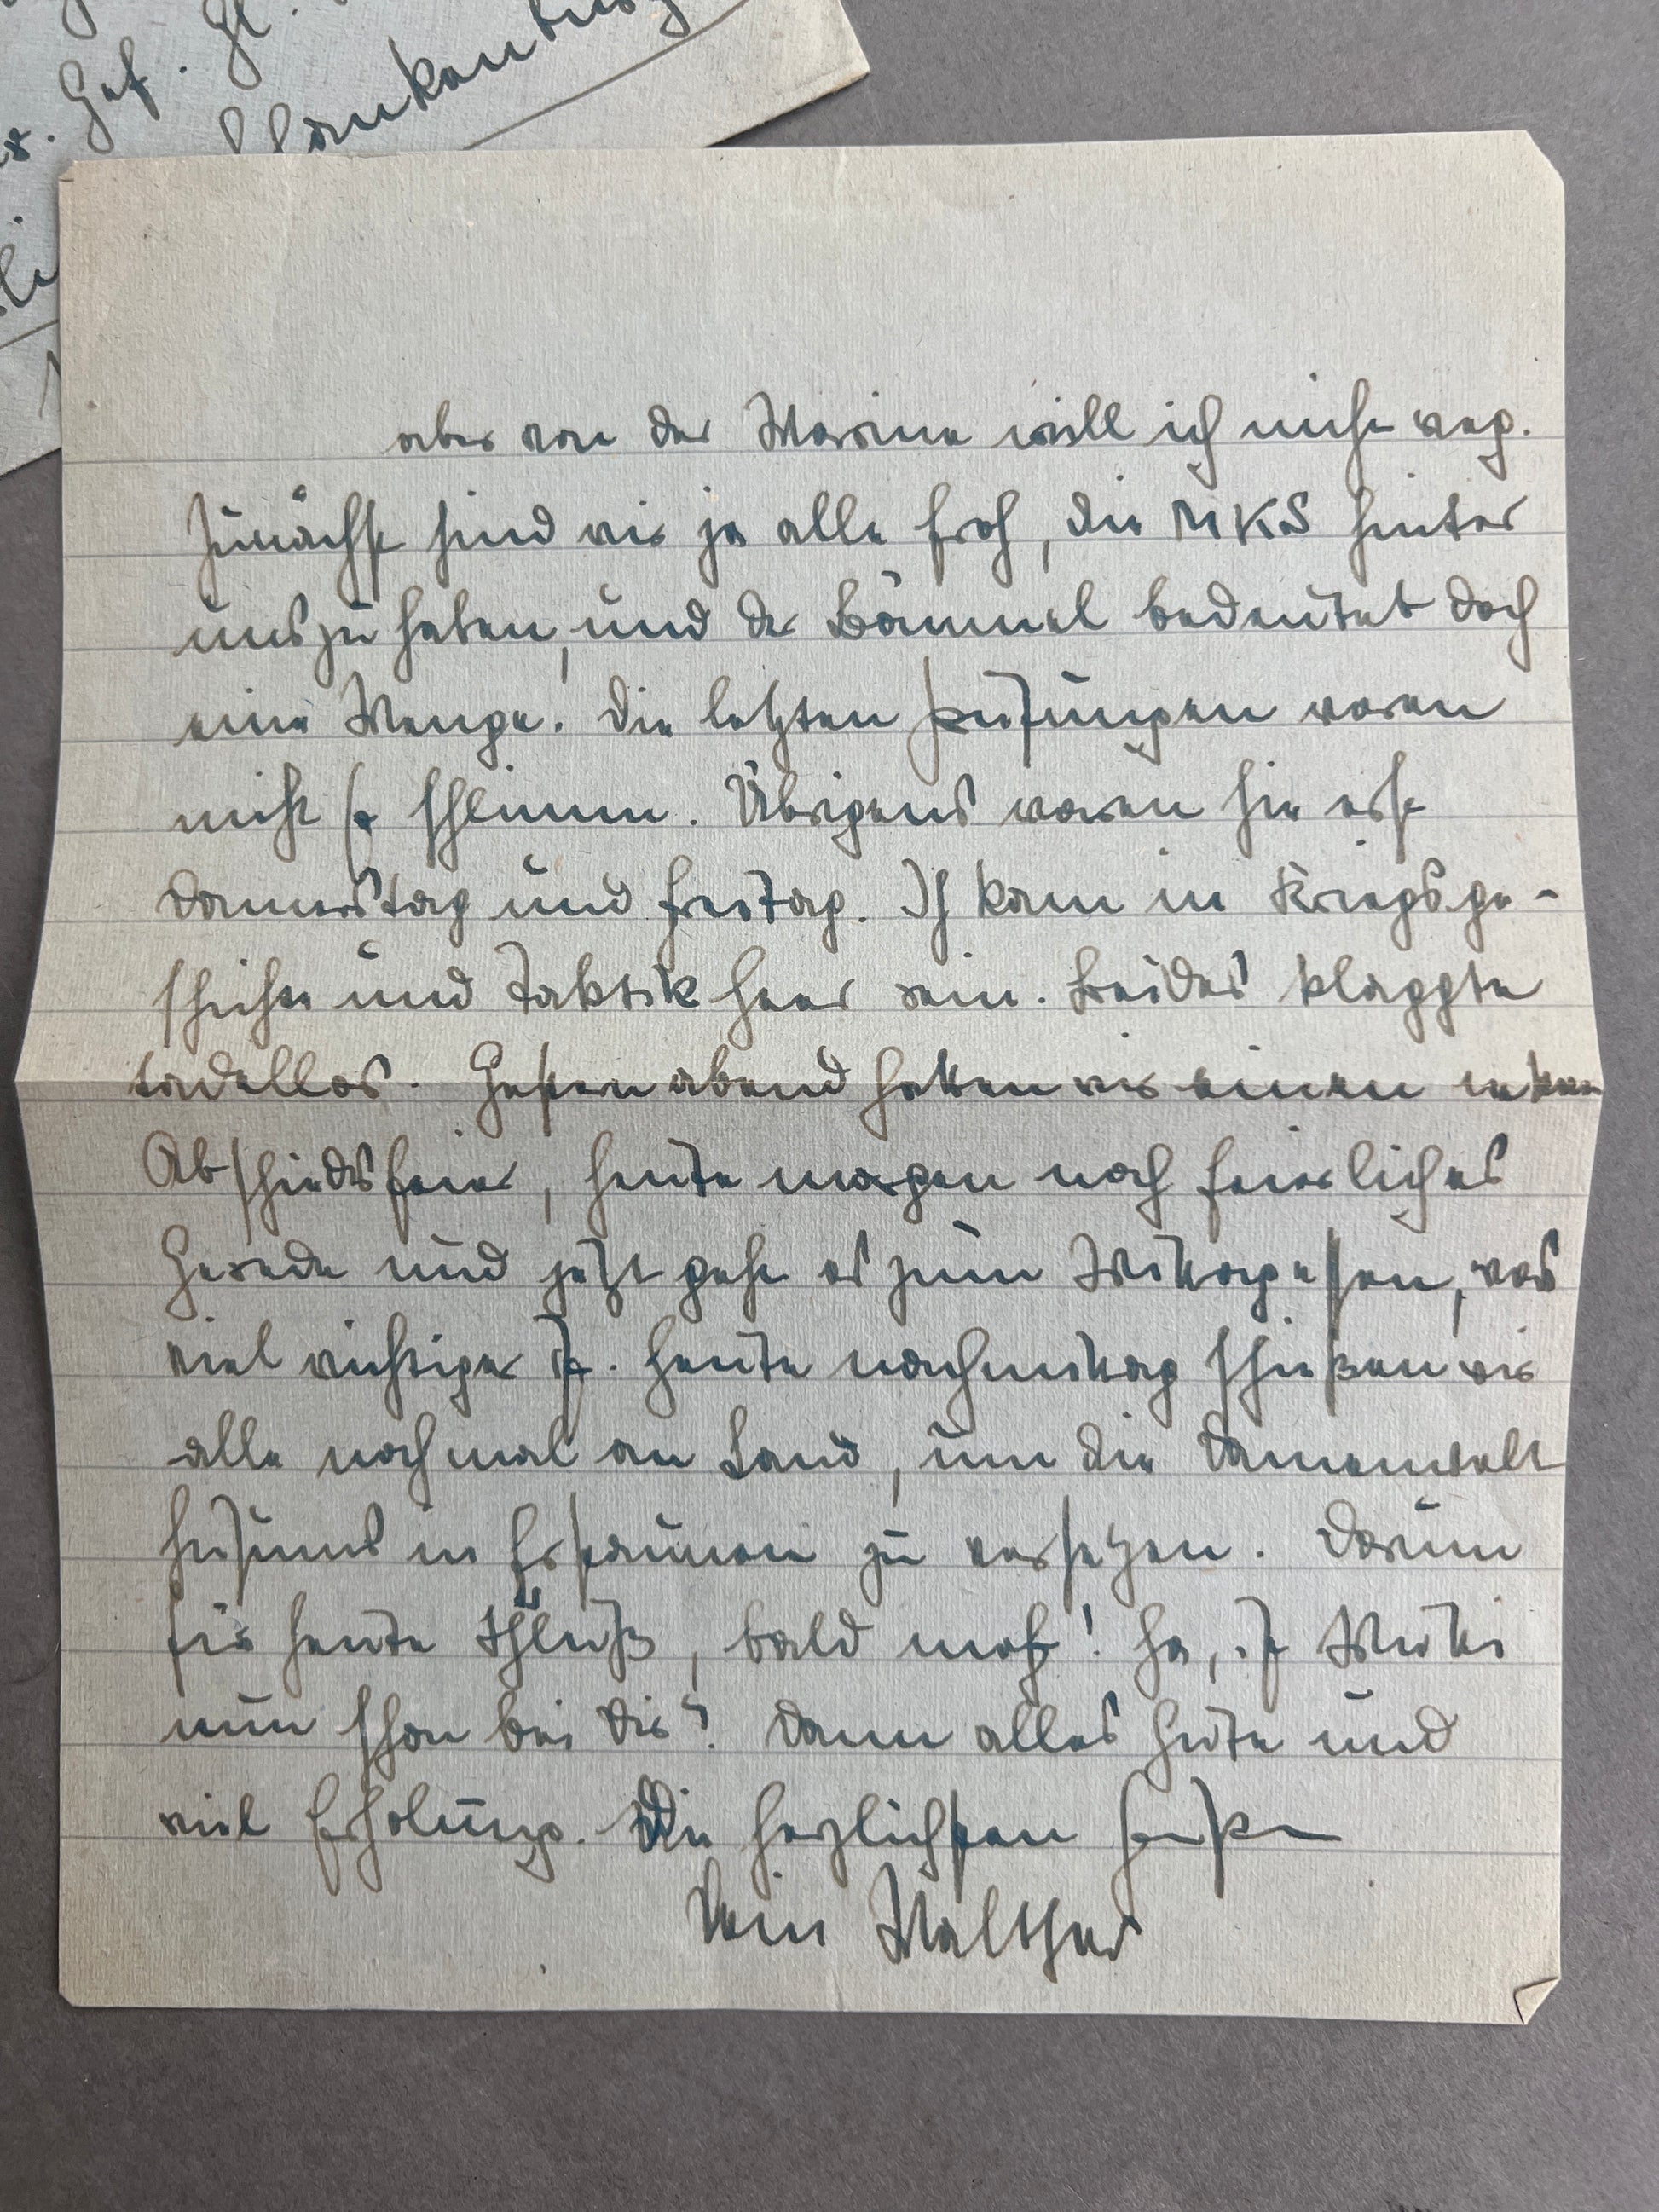 Gef. Gl.
Blankenburg
aber von der Marine will ich nicht weg.
Zunächst sind wir ja alle froh, die MKS hinter
uns zu haben, und der Bömmel bedeutet doch
eine Menge. Die letzten Prüfungen waren
nicht so schlimm. Übrigens waren sie erst
Donnerstag und Freitag. Ich kam in Kriegsge-
schichte und Taktik Heer rein. Beides klappte
tadellos. Gestern abend hatten wir einen netten
Abschiedsfeier, heute morgen noch feierliches
Gerede und jetzt geht es zum Mittagessen, was
viel wichtiger ist. Heute nachmittag schießen wir
alle noch mal an Land, um die Damenwelt
Husums in Erstaunen zu versetzen. Darum
für heute Schluß, bald mehr! Ha, ist Mutti
nun schon bei Dir? Dann alles Gute und
viel Erholung. Die herzlichsten Grüße
Dein Walther